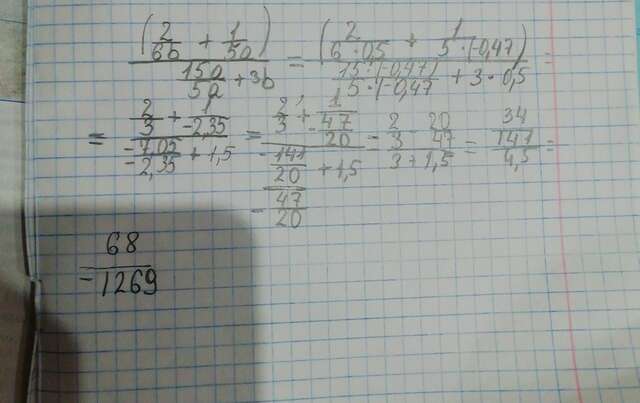 (2/6b + 1/5a) / (15a/5a + 3b) = (2/(6·0,5) + 1/(5·(-0,47))) / (15·(-0,47)/(5·(-0,47)) + 3·0,5) =
= (2/3 + 1/-2,35) / (-7,05/-2,35 + 1,5) = (2/3 + 1/(-47/20)) / ((-141/20)/(-47/20) + 1,5) = (2/3 - 20/47) / (3 + 1,5) = (34/141) / 4,5 =
68/-1269